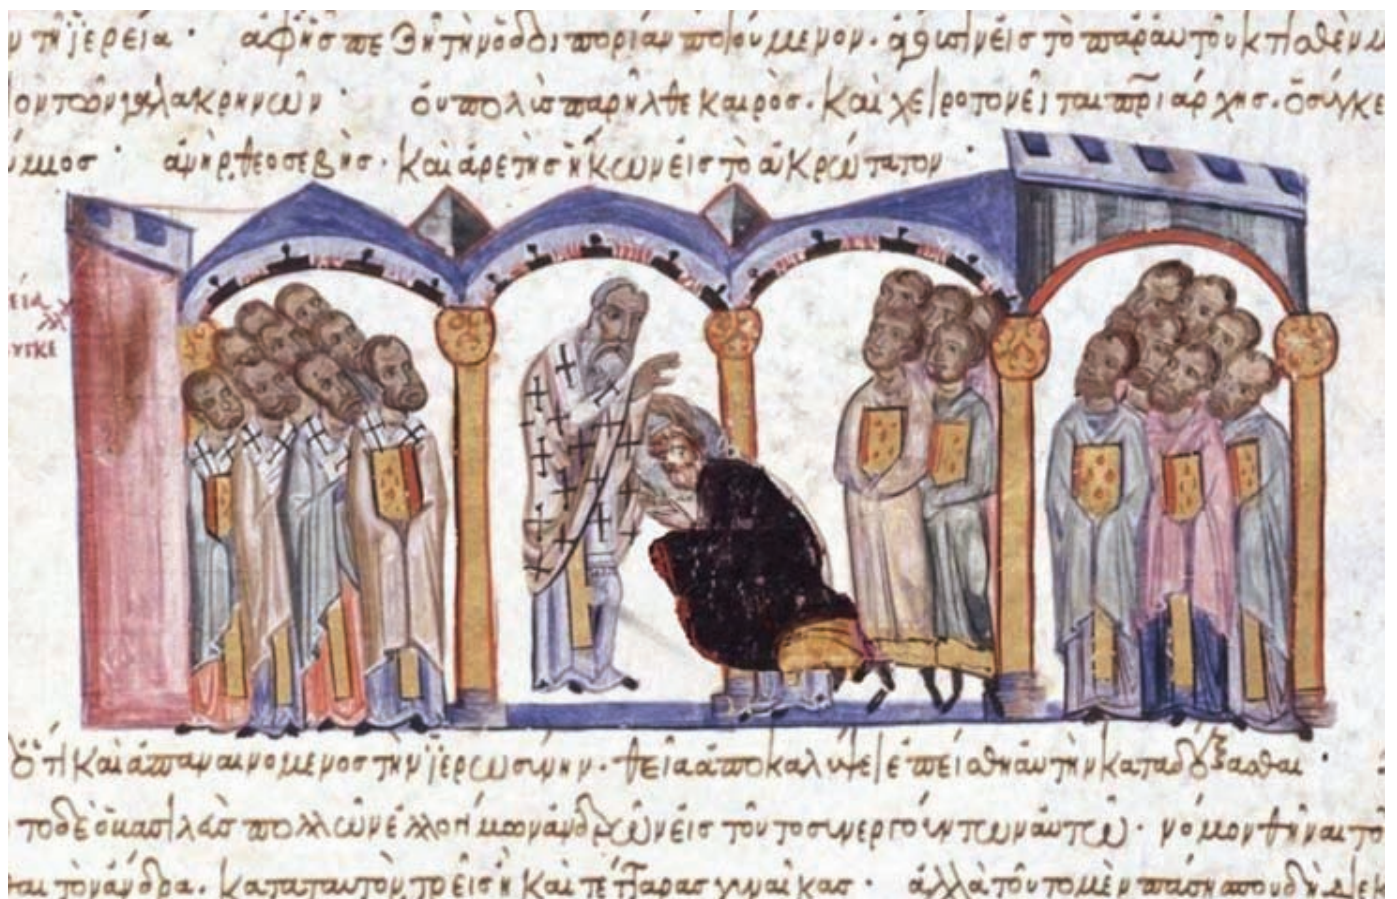 τῇ ἱερεία · ἀφ ἧς πεζῇ τὴν ὁδοιπορίαν ποιούμενον · εἰς τὸ παρ αὐτοῦ κτισθὲν
τῶν γαλακρηνῶν · οὐ πολὺς παρῆλθε καιρὸς · καὶ χειροτονεῖται πριάρχης · ὁ σύγκε
ἀνὴρ θεοσεβὴς · καὶ ἀρετῆς ἥκων εἰς τὸ ἀκρώτατον ·
ΕΙΑ
ΥΓΚΕ
ὅτι καὶ ἀπαναινόμενος τὴν ἱερωσύνην · θεία ἀποκαλύψει ἐπείσθη αὐτὴν καταδέξασθαι ·
πολλῶν ἐλλογίμων ἀνδρῶν εἰς τοῦτο συνεργούντων αὐτῷ · νόμον θεῖναι το
τὸν ἄνδρα · κατα ταυτὸν τρεῖς ἢ καὶ τέτταρας γυναῖκας · ἀλλὰ τοῦτο μὲν πάσῃ σπουδῇ